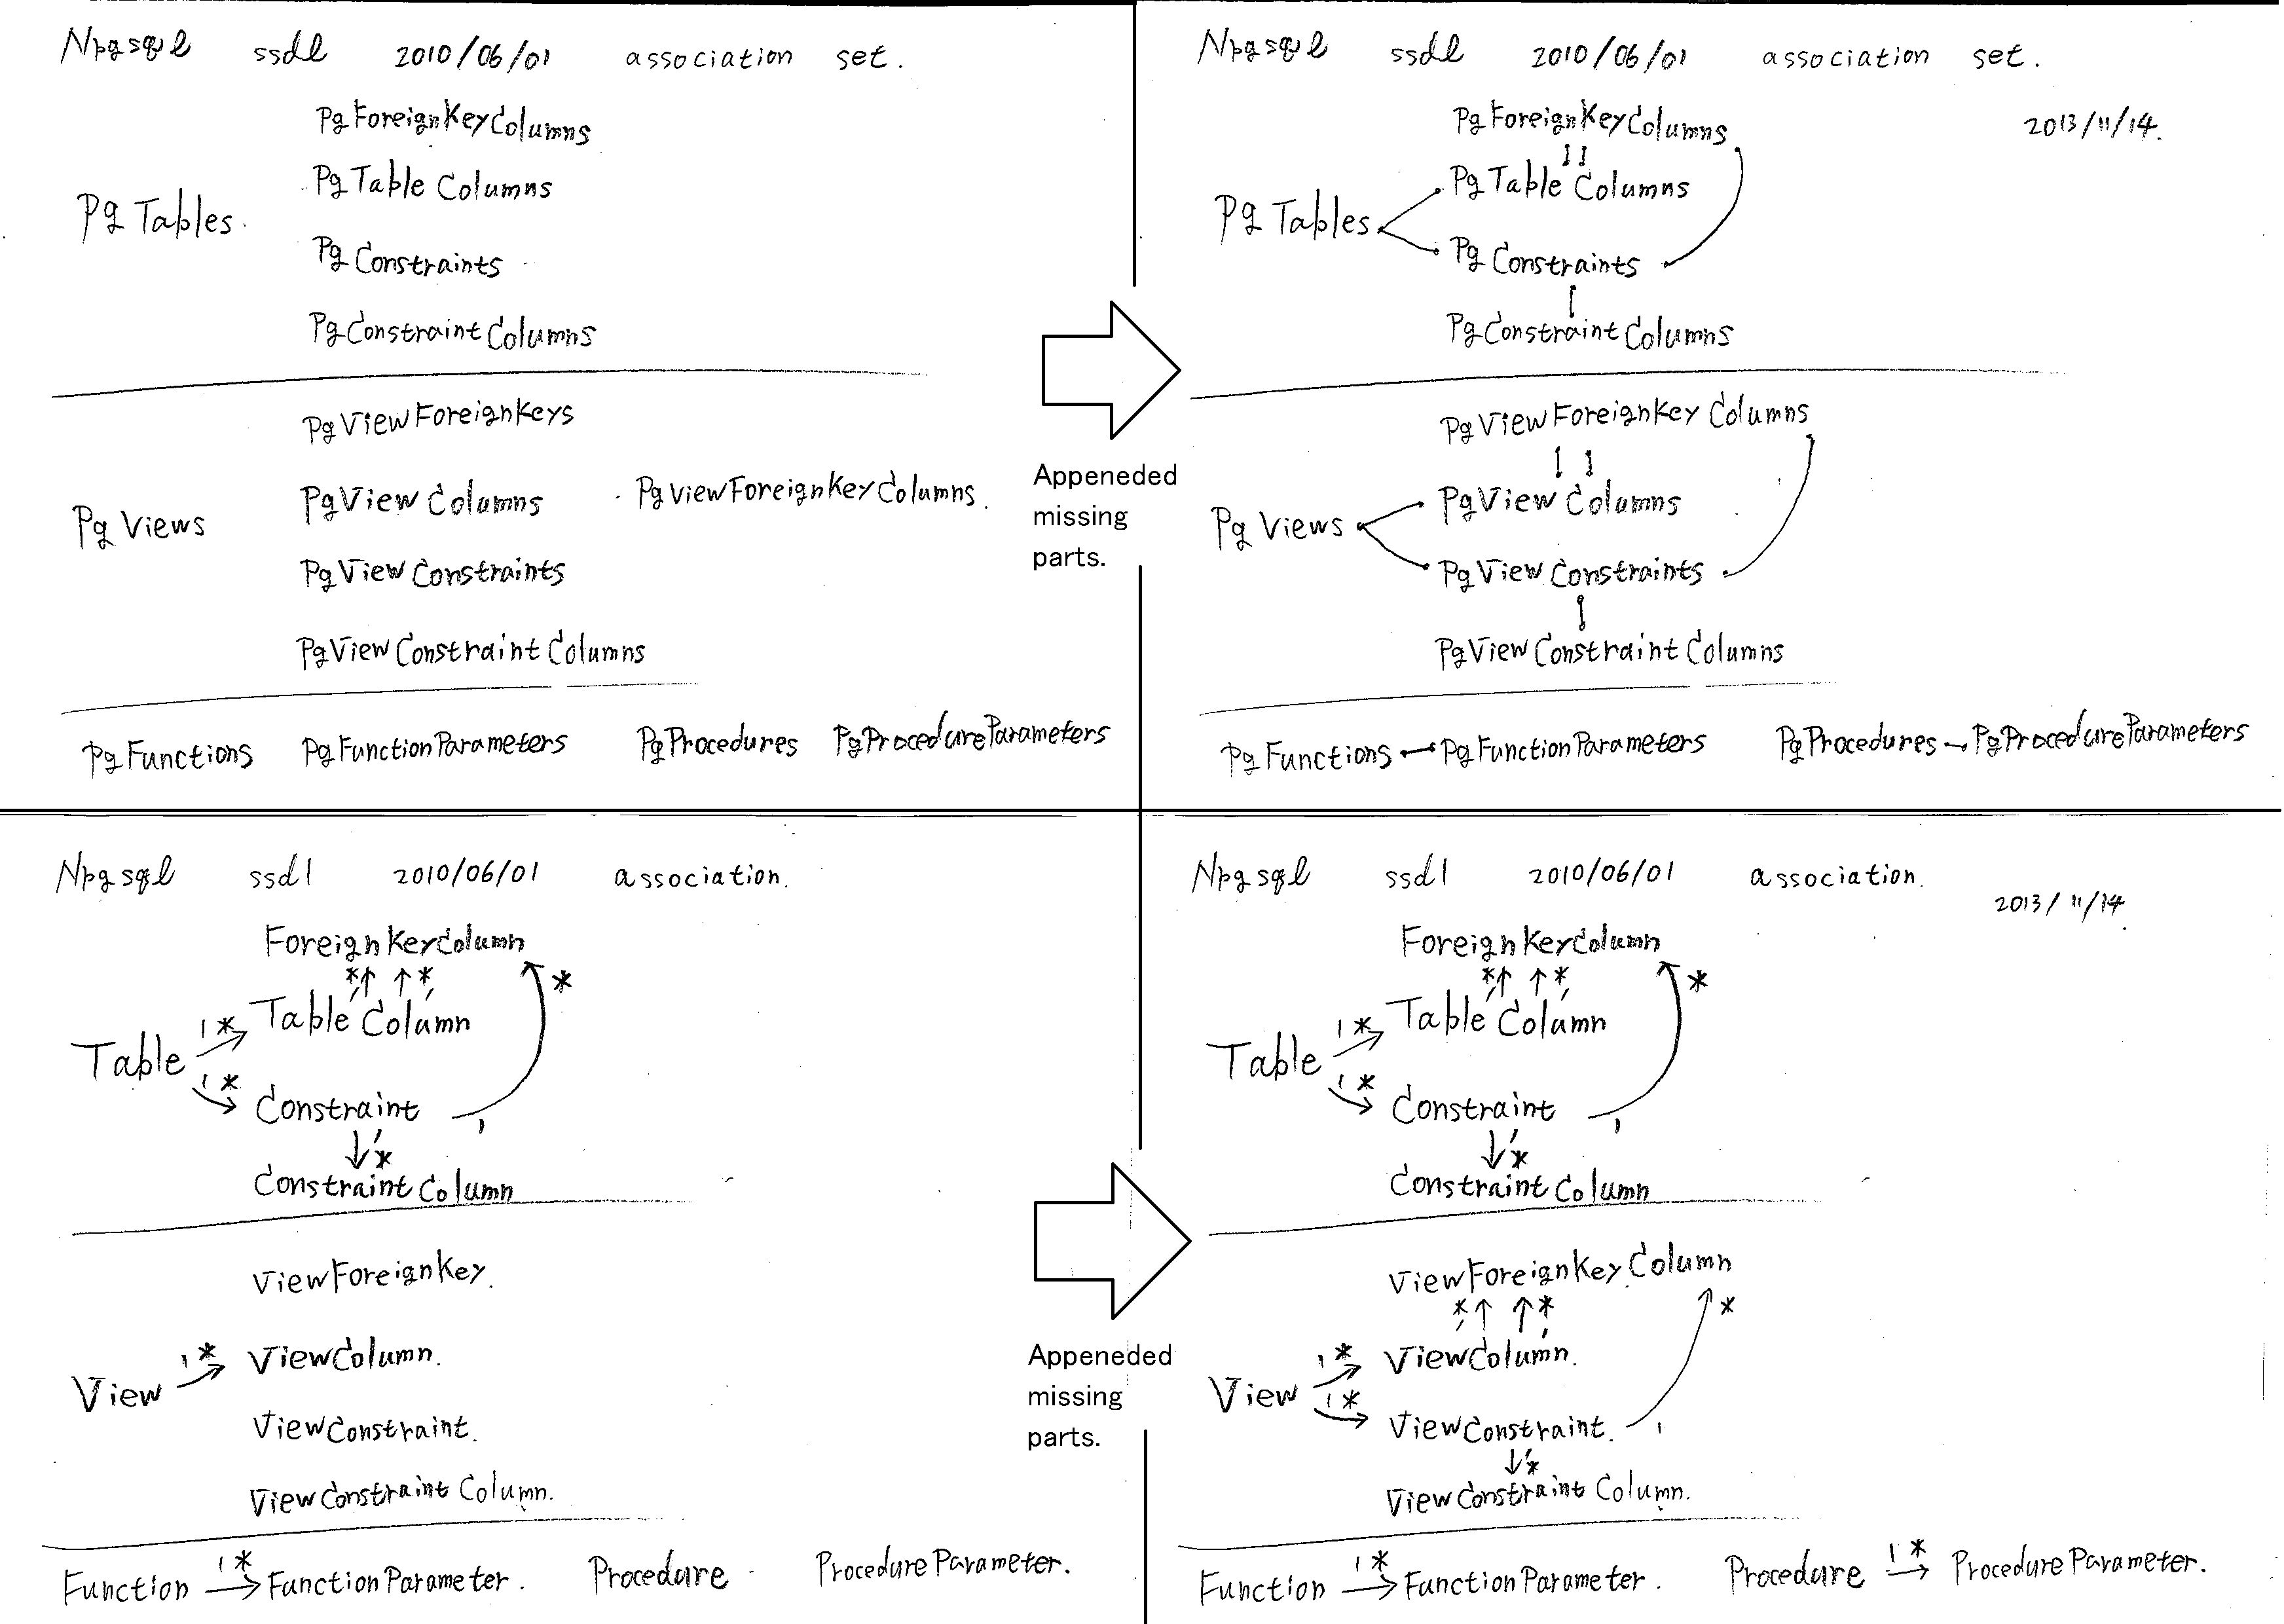 Npgsql ssdl 2010/06/01 association set.
PgForeignKeyColumns
PgTableColumns
PgTables.
PgConstraints
PgConstraintColumns
PgViewForeignKeys
PgViewColumns PgViewForeignKeyColumns.
PgViews
PgViewConstraints
PgViewConstraintColumns
PgFunctions PgFunctionParameters PgProcedures PgProcedureParameters
Appeneded
missing
parts.
Npgsql ssdl 2010/06/01 association set.
2013/11/14.
PgForeignKeyColumns
PgTableColumns
PgTables
PgConstraints
PgConstraintColumns
PgViewForeignKeyColumns
PgViewColumns
PgViews
PgViewConstraints
PgViewConstraintColumns
PgFunctions PgFunctionParameters PgProcedures PgProcedureParameters
Npgsql ssdl 2010/06/01 association.
ForeignKeyColumn
* * *
1 1
1 * TableColumn
Table
1 *
Constraint 1
1 *
ConstraintColumn
ViewForeignKey.
1 * ViewColumn.
View
ViewConstraint.
ViewConstraintColumn.
1 *
Function FunctionParameter. Procedure ProcedureParameter.
Appeneded
missing
parts.
Npgsql ssdl 2010/06/01 association.
2013/11/14
ForeignKeyColumn
* * *
1 1
1 * TableColumn
Table
1 *
Constraint 1
1 *
ConstraintColumn
ViewForeignKey.Column
* * *
1 1
1 * ViewColumn.
View
1 *
ViewConstraint. 1
1 *
ViewConstraintColumn.
1 * 1 *
Function FunctionParameter. Procedure ProcedureParameter.